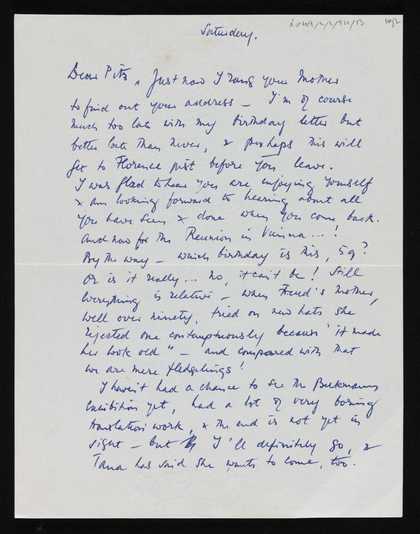 Saturday.
Dear Pitz, Just now I rang your Mother
to find out your address – I'm of course
much too late with my birthday letter but
better late than never, & perhaps this will
get to Florence just before you leave.
I was glad to hear you are enjoying yourself
& am looking forward to hearing about all
you have seen & done when you come back.
And now for the Reunion in Vienna...!
By the way – which birthday is this, 59?
Or is it really... no, it can't be! Still
everything is relative – when Freud's mother,
well over ninety, tried on new hats she
rejected one contemptuously because "it made
her look old" – and compared with that
we are mere fledglings!
I haven't had a chance to see the Beckmann
Exhibition yet, had a lot of very boring
translation work, & the end is not yet in
sight – but I'll definitely go, &
has said she wants to come, too.